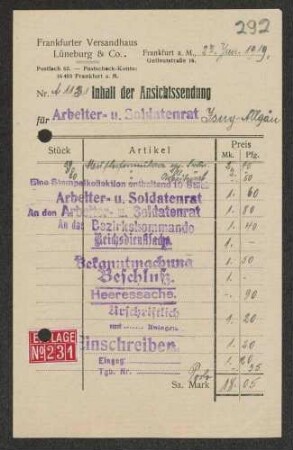 292
Frankfurter Versandhaus
Lüneburg & Co..
Postfach 62. — Postscheck-Konto:
16403 Frankfurt a. M.
Frankfurt a. M., 22. Jan. 1919.
Gutleutstraße 16.
Nr. 1131 Inhalt der Ansichtssendung
für Arbeiter- u. Soldatenrat Isny-Allgäu
Stück Artikel Preis
Mk. Pfg.
Eine Stempelkollektion enthaltend 10 Stück
Arbeiter- u. Soldatenrat 1. 60
An den Arbeiter- u. Soldatenrat 1. 80
An das Bezirkskommando 1. 40
Reichsdienstsache. 1.
Bekanntmachung 1. 50
Beschluß.
Heeressache. 90
Urschriftlich 1.
Einschreiben. 1. 20
Eingeg.
Tgb. Nr. Porto 35
Sa. Mark 18 05
EINLAGE
No 231